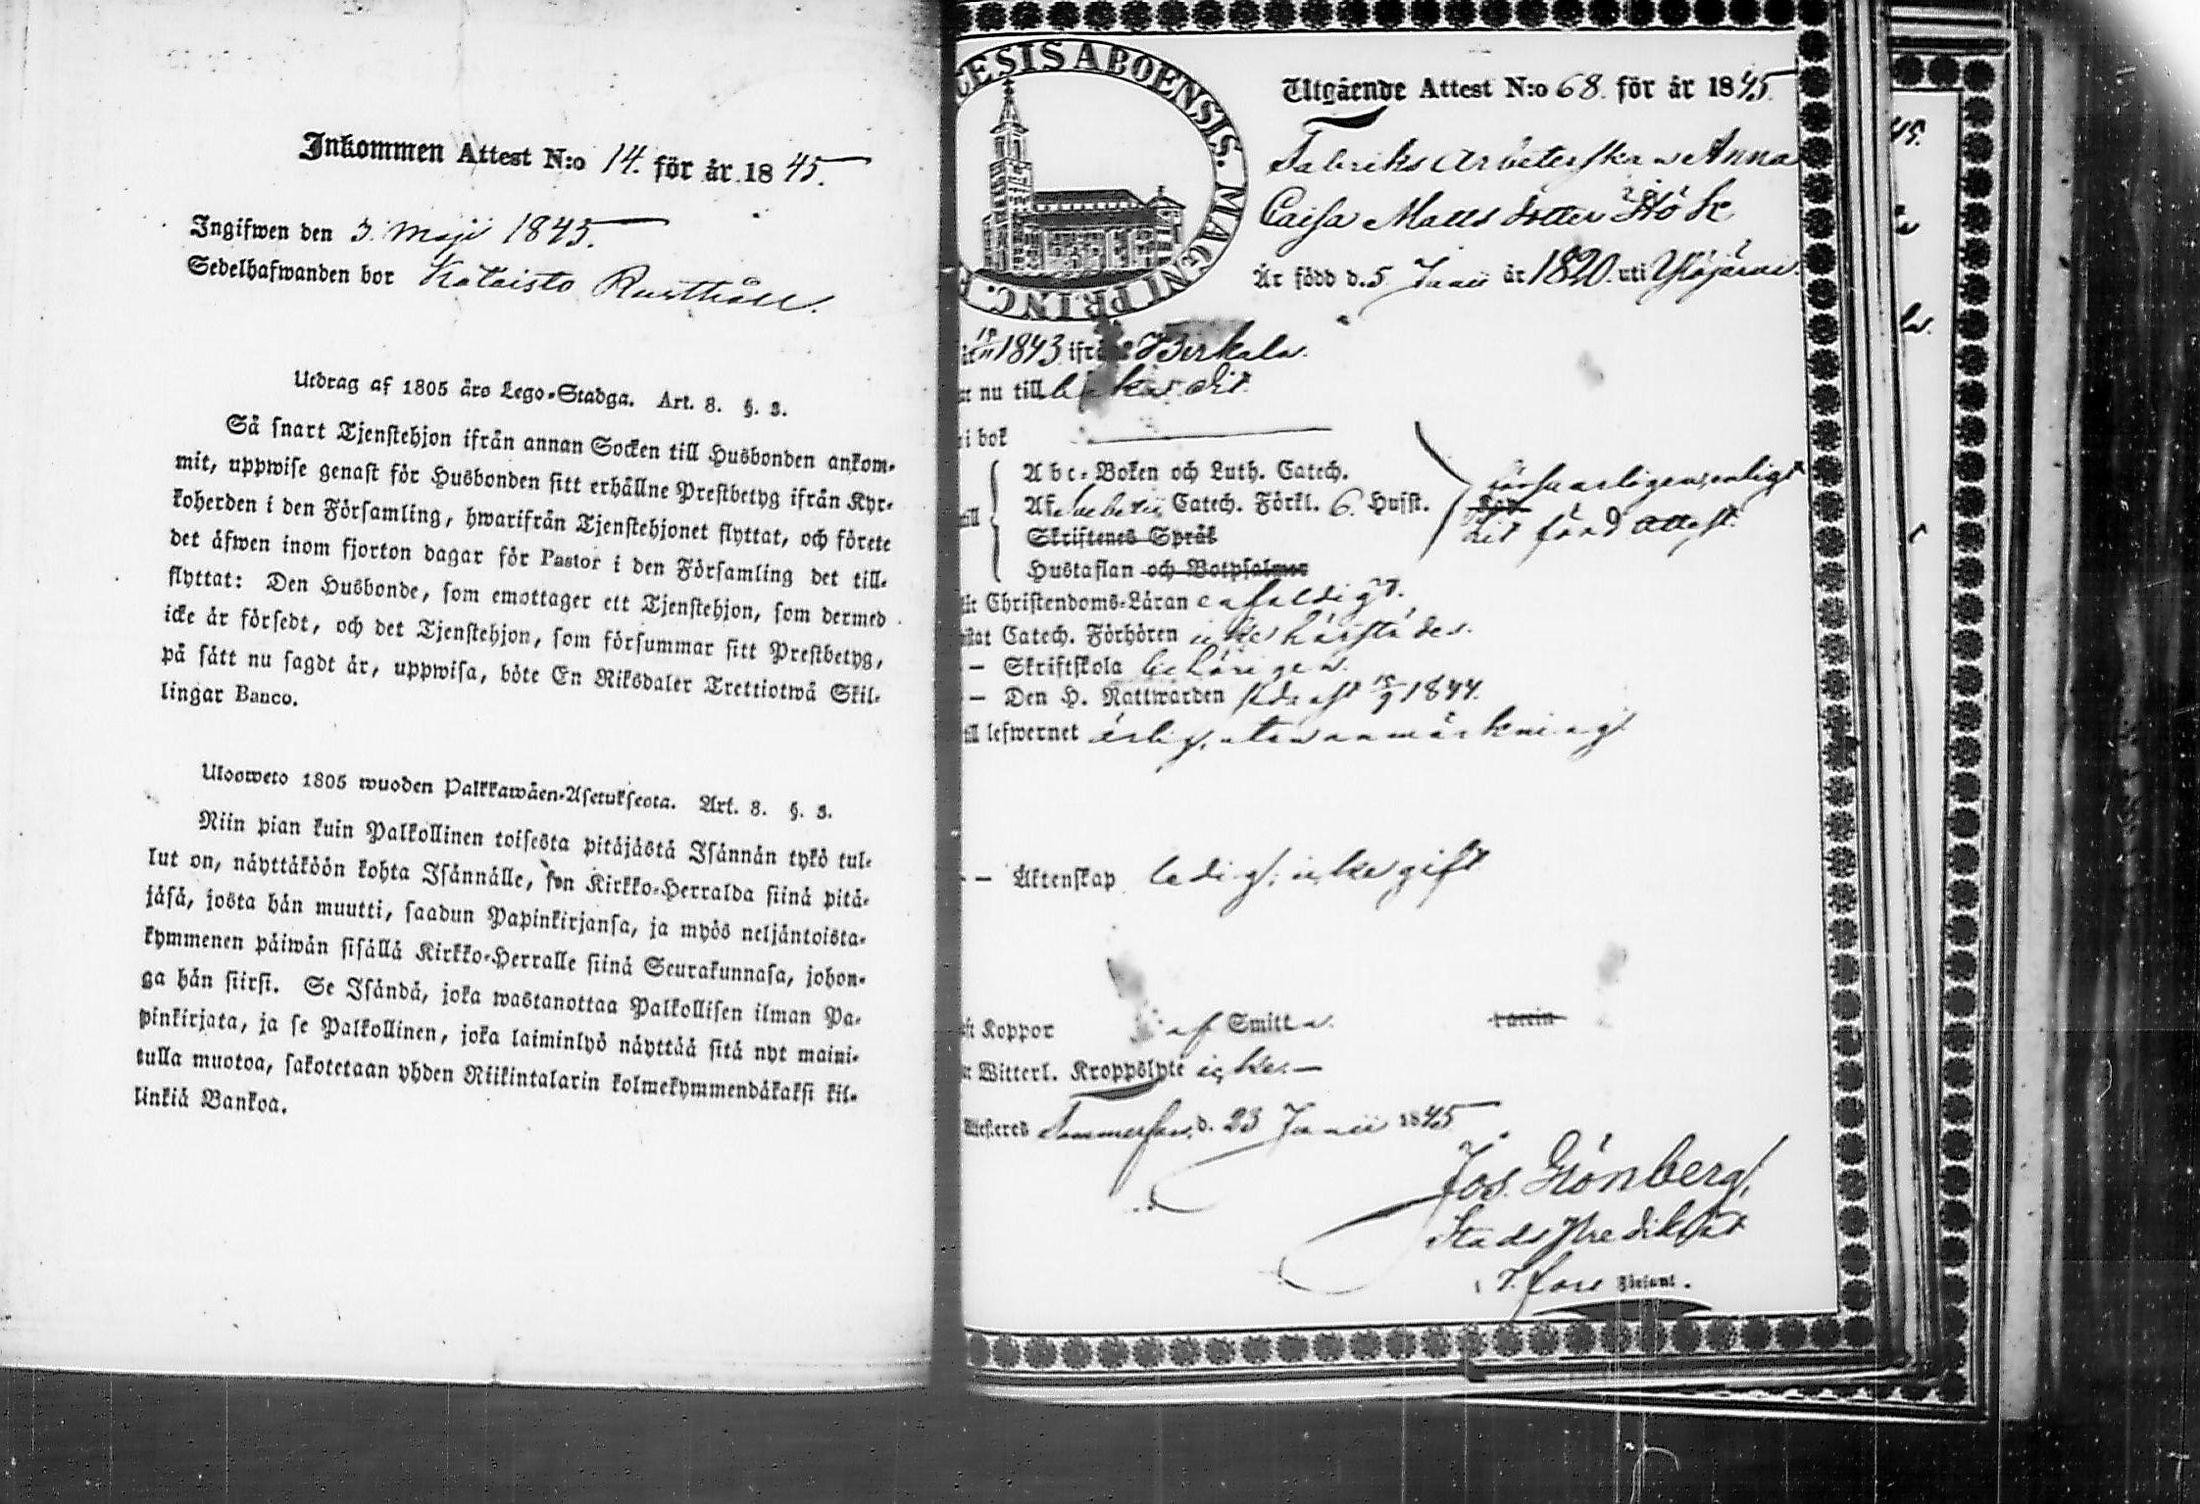 Inkommen Attest N:o 14. för år 1845.
Ingifwen den 3. Maji 1845.
Sedelhafwanden bor Kataisto Rusthåll.
Utdrag af 1805 års Lego-Stadga. Art. 8. §. 3.
Så snart Tjenstehjon ifrån annan Socken till Husbonden ankom-
mit, uppwise genast för Husbonden sitt erhållne Prestbetyg ifrån Kyr-
koherden i den Församling, hwarifrån Tjenstehjonet flyttat, och förete
det äfwen inom fjorton dagar för Pastor i den Församling det till-
flyttat: Den Husbonde, som emottager ett Tjenstehjon, som dermed
icke är försedt, och det Tjenstehjon, som försummar sitt Prestbetyg,
på sätt nu sagdt är, uppwisa, böte En Riksdaler Trettiotwå Skil-
lingar Banco.
Ulosweto 1805 wuoden Palkkawäen-Asetuksesta. Art. 8. §. 3.
Niin pian kuin Palkollinen toisesta pitäjästä Isännän tykö tul-
lut on, näyttäköön kohta Isännälle, sen Kirkko-Herralda siinä pitä-
jäsä, josta hän muutti, saadun Papinkirjansa, ja myös neljäntoista-
kymmenen päiwän sisällä Kirkko-Herralle siinä Seurakunnasa, johon-
ga hän siirsi. Se Isändä, joka wastanottaa Palkollisen ilman Pa-
pinkirjata, ja se Palkollinen, joka laiminlyö näyttää sitä nyt maini-
tulla muotoa, sakotetaan yhden Riikintalarin kolmekymmendäkaksi kil-
linkiä Bankoa.
CESIS ABOENSIS. MAGNI PRINC. F
Utgående Attest N:o 68. för år 1845
Fabriks arbeterskan Anna
Caisa Matts dotter Höök
Är född d. 5 Junii år 1820. uti Ylöjärvi.
1843 ifrån Birkala.
nu till bakas dit
i bok
Abc-Boken och Luth. Catech.
Af Svebelii Catech. Förkl. 6. Hufst.
försvarligen, enligt
hit förd attest.
Skriftenes Språk
Hustaflan och Botpsalmer
Christendoms-Läran enfaldigt.
Catech. Förhören icke härstädes.
– Skriftskola behörigen.
– Den H. Nattwarden sednast 1844.
lefwernet ärlig, utan anmärkning
– Äktenskap ledig; icke gift
Koppor af Smitta.
Witterl. Kroppslyte icke. –
Attesteres Tammerfors, d. 23 Junii 1845
Jos. Grönberg,
Stads Predikant
T. fors Församl.